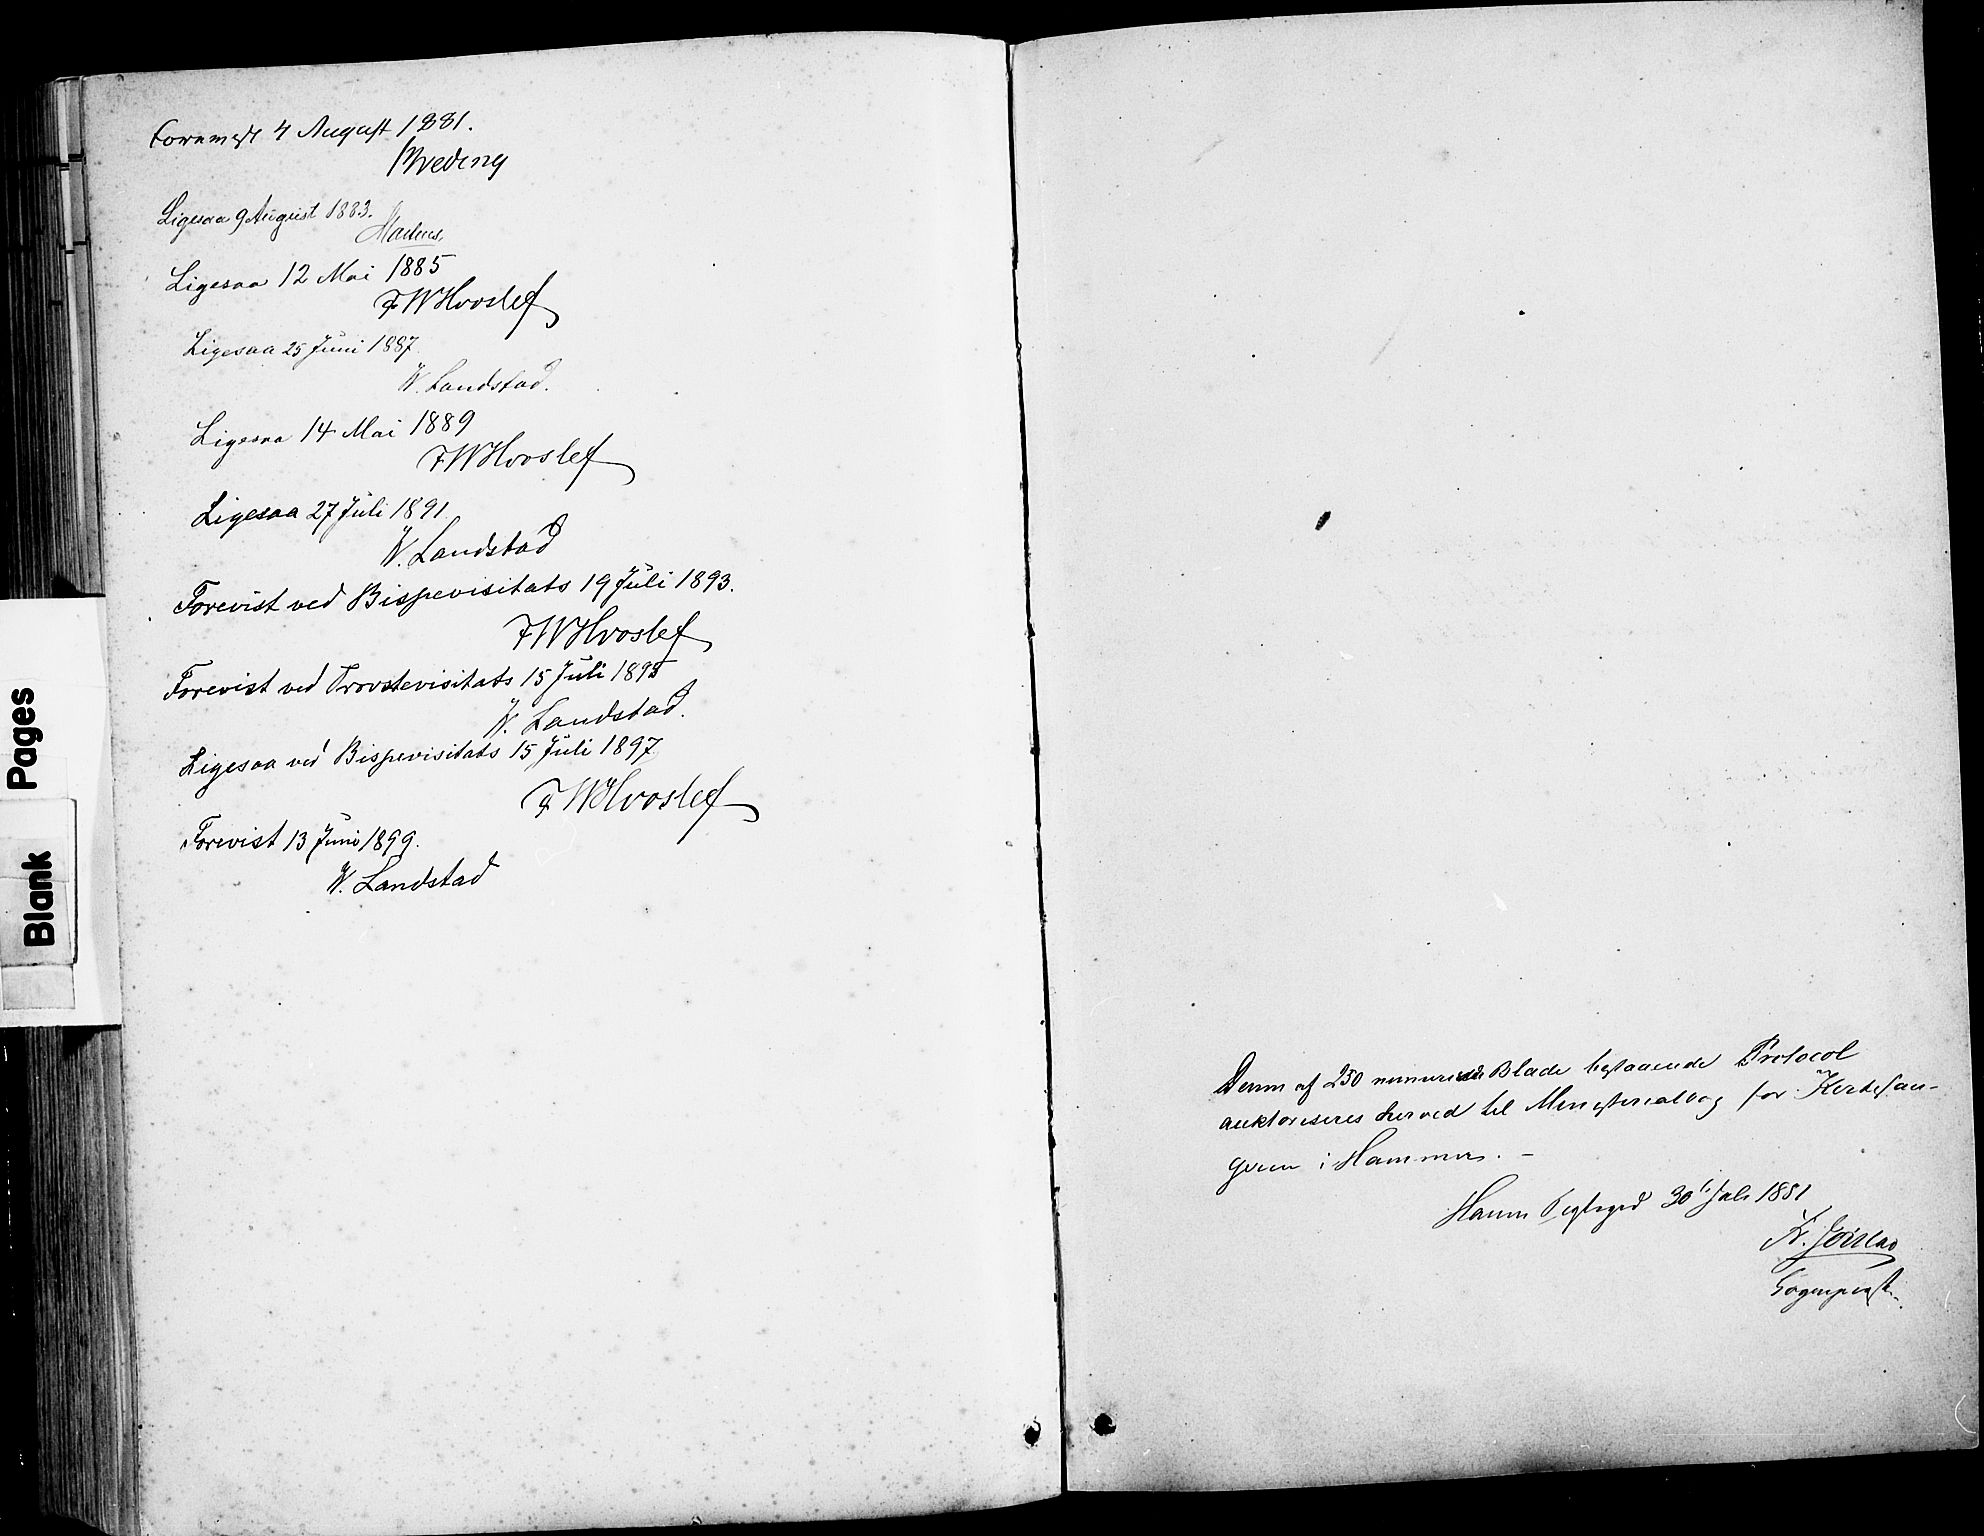 Forevist 4 August 1881.
Ligesaa 9 August 1883.
Ligesaa 12 Mai 1885
FWHvoslef
Ligesaa 25 Juni 1887.
W. Landstad.
Ligesaa 14 Mai 1889
FWHvoslef
Ligesaa 27 Juli 1891.
W. Landstad
Forevist ved Bispevisitats 19 Juli 1893.
FWHvoslef
Forevist ved Provstevisitats 15 Juli 1895
W. Landstad.
Ligesaa ved Bispevisitats 15 Juli 1897.
FWHvoslef
Forevist 13 Juni 1899.
W. Landstad
Blank Pages
Denne af 250 numererede Blade bestaaende Protocol
auktoriseres herved til Ministerialbog for Kirkesan-
geren i Hammer. -
30 Juli 1881
Sogneprest.